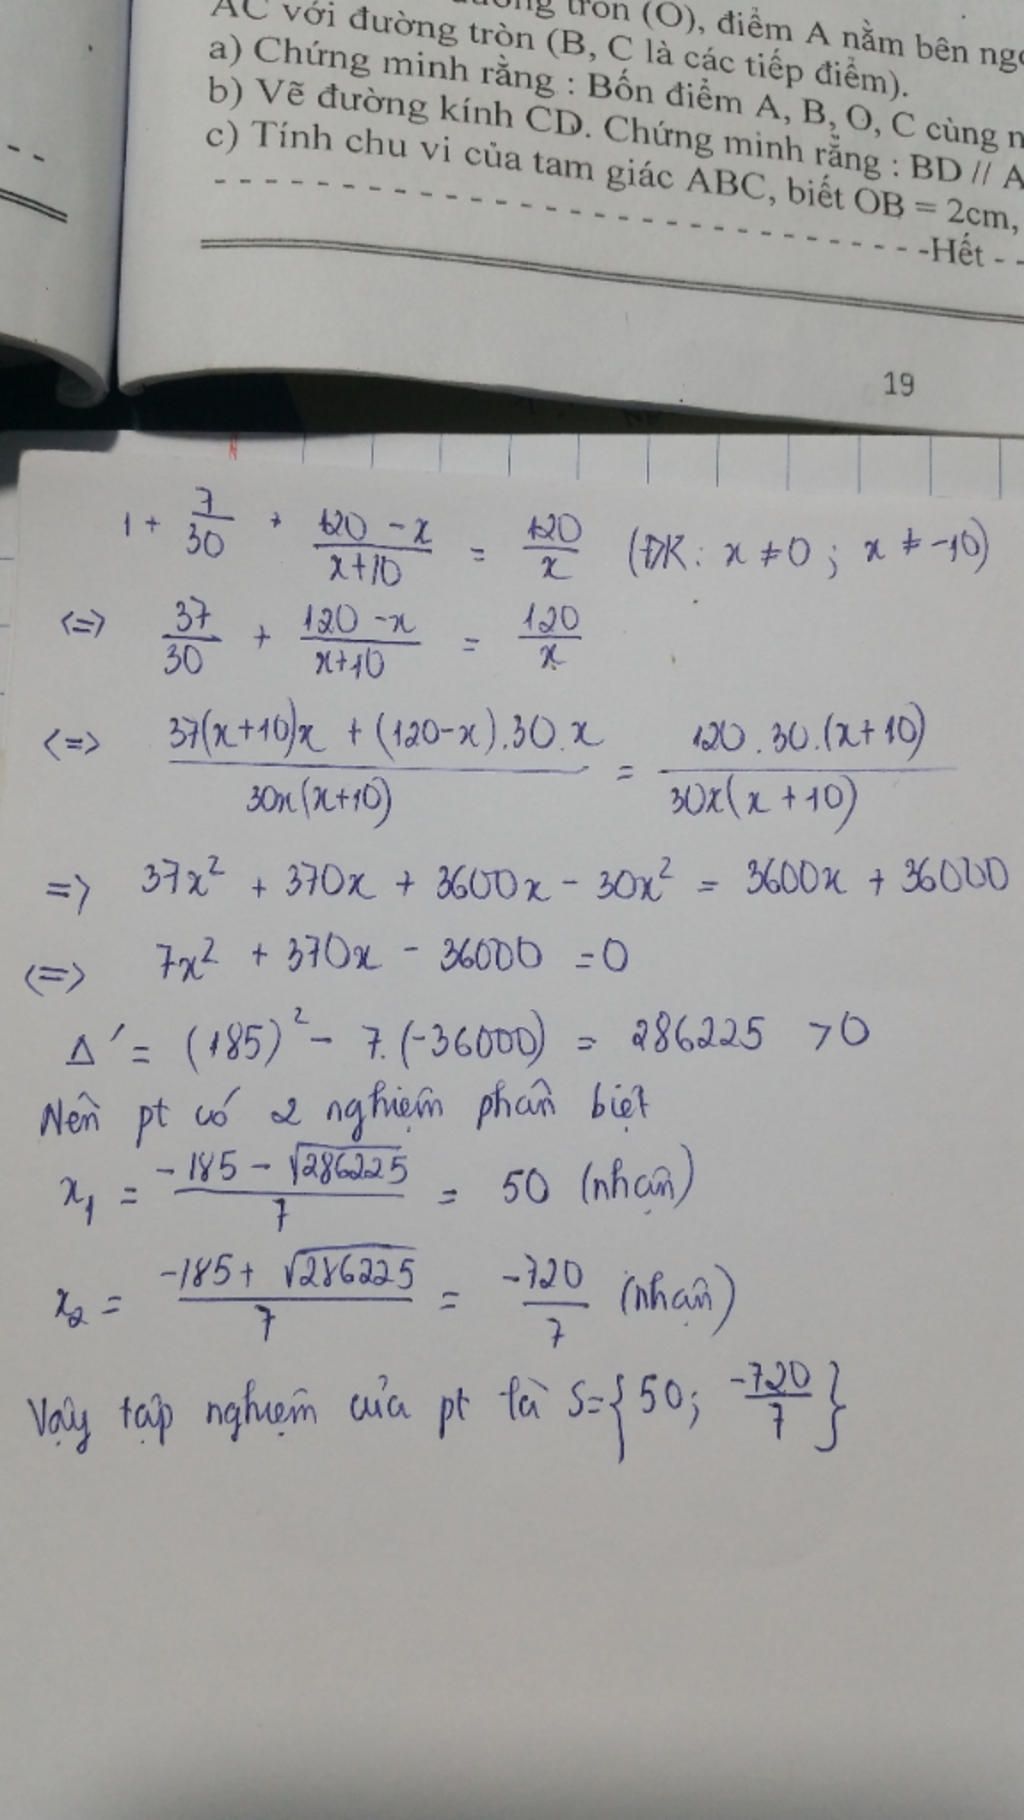 tròn (O), điểm A nằm bên ngo
AC với đường tròn (B, C là các tiếp điểm).
a) Chứng minh rằng : Bốn điểm A, B, O, C cùng n
b) Vẽ đường kính CD. Chứng minh rằng : BD // A
c) Tính chu vi của tam giác ABC, biết OB = 2cm,
-Hết - -
19
1 + 7/30 + (120 - x)/(x+10) = 120/x (ĐK: x ≠ 0 ; x ≠ -10)
<=> 37/30 + (120 - x)/(x+10) = 120/x
<=> (37(x+10)x + (120-x).30.x)/(30x(x+10)) = (120.30.(x+10))/(30x(x+10))
=> 37x² + 370x + 3600x - 30x² = 3600x + 36000
<=> 7x² + 370x - 36000 = 0
Δ' = (185)² - 7.(-36000) = 286225 > 0
Nên pt có 2 nghiệm phân biệt
x₁ = (-185 - √286225)/7 = 50 (nhận)
x₂ = (-185 + √286225)/7 = -720/7 (nhận)
Vậy tập nghiệm của pt là S={50; -720/7}